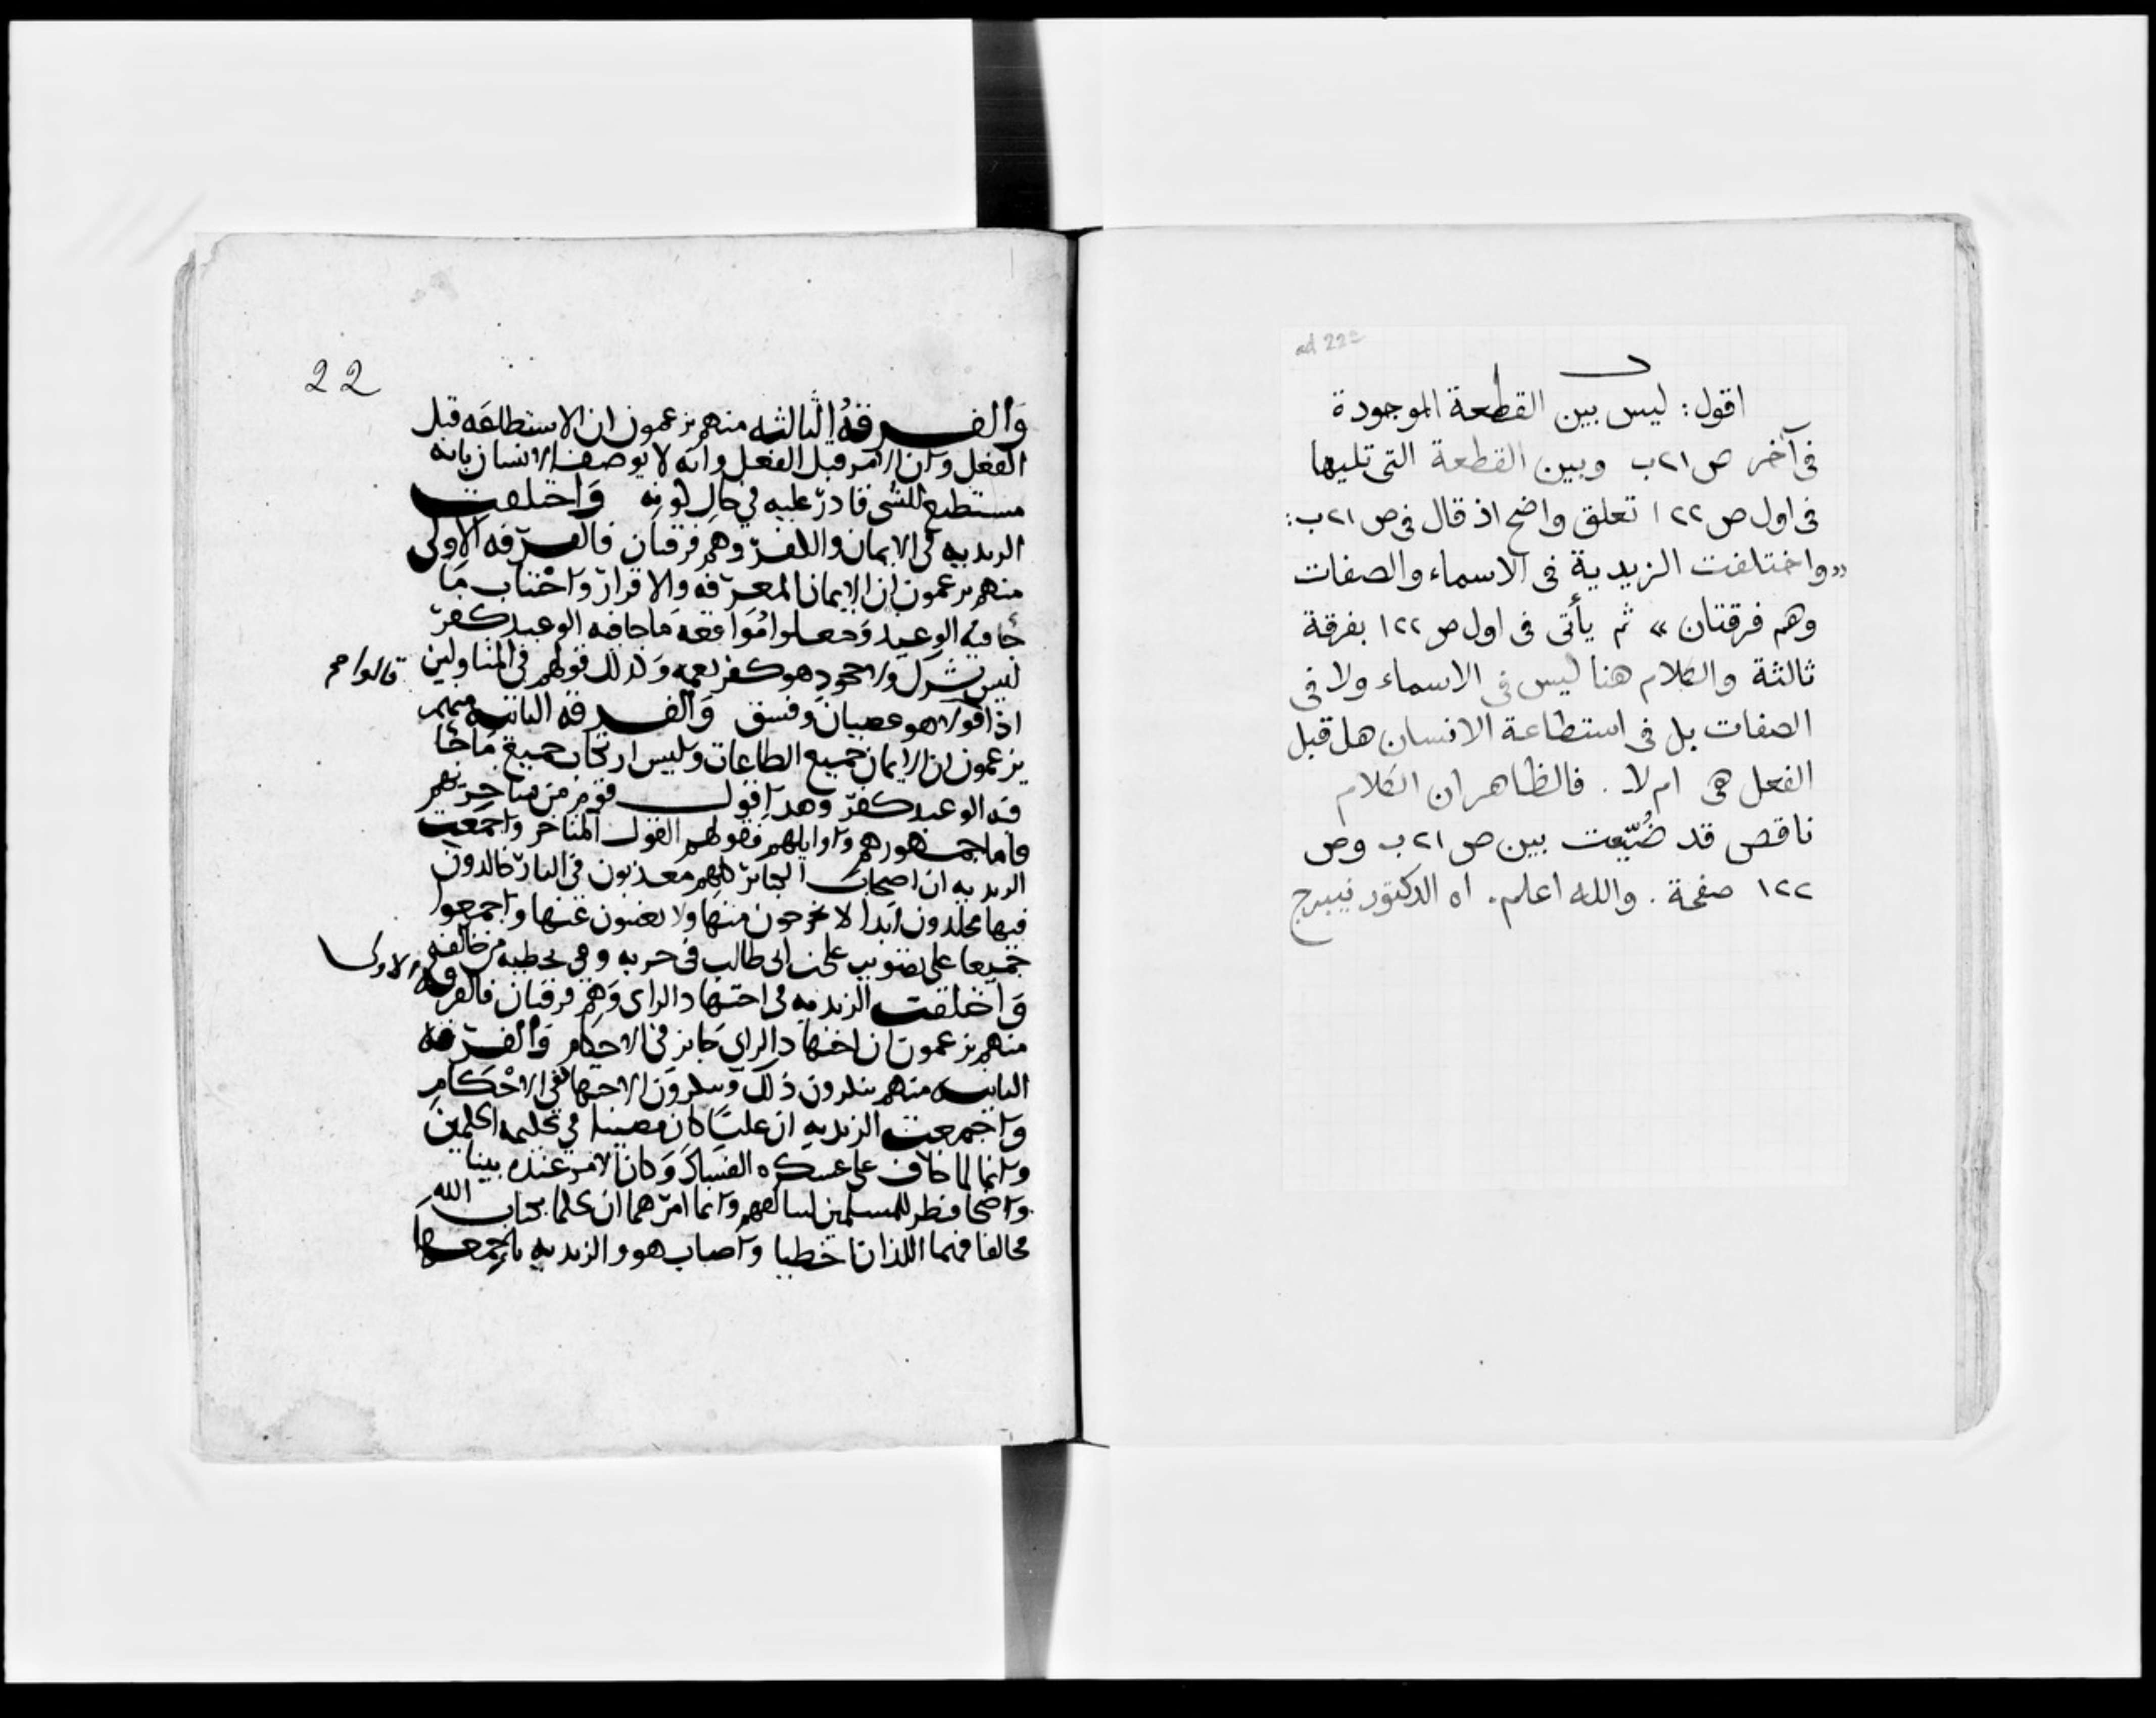 ad 22a
اقول: ليس بين القطعة الموجودة
فى آخر ص ٢١ب وبين القطعة التى تليها
فى اول ص ٢٢ا تعلق واضح اذ قال فى ص ٢١ب:
«واختلفت الزيدية فى الاسماء والصفات
وهم فرقتان» ثم يأتى فى اول ص ٢٢ا بفرقة
ثالثة والكلام هنا ليس فى الاسماء ولا فى
الصفات بل فى استطاعة الانسان هل قبل
الفعل هى ام لا. فالظاهر ان الكلام
ناقص قد ضُيّعت بين ص ٢١ب وص
٢٢ا صفحة. والله اعلم. اه الدكتور نيبرج
22
وَالفرقةُ الثالثه منهم يزعمون ان الاستطاعَه قبل
الفعل وان الامر قبل الفعل وانه لا يوصف الانسان بانه
مستطيع للشى قادر عليه في حال كونه وَاختلفت
الزيديه في الايمان والكفر وهم فرقتان فالفرقه الاولى
منهم يزعمون ان الايمان المعرفه والاقرار واجتناب مَا
جا فيه الوعيد وَجعلوا مُوَاقعَه مَا جا فيه الوعيد كفر
ليس بشرك ولا جحود هو كفر نعمه وَكذلك قولهم في المتاولين
قالوا صح
اذا قولا هو عصيان وفسق وَالفرقه الثانيه منهم
يزعمون ان الايمان جميع الطاعات وليس ارتكاب جميع مَا جَا
فيه الوعيد كفر وهذا قول قوم من متاخريهم
فاما جمهورهم واوايلهم فقولهم القول المتاخر واجمعت
الزيديه ان اصحاب الكبائر كلهم معذبون في النار خالدون
فيها مخلدون ابدا لا يخرجون منها ولا يغيبون عنها واجمعوا
جميعا على تصويب على بن ابى طالب فى حربه وفي تخطيه من خالفه
وَاختلفت الزيديه فى اجتهاد الراى وَهم فرقتان فالفرقه
الاولى
منهم يزعمون ان اجتهاد الراي جايز في الاحكام وَالفرقه
الثانيه منهم ينكرون ذلك وينكرون الاجتهاد فى الاحْكَام
واجمعت الزيديه ان عليّا كان مصيبا في تحكيمه الحكمين
وانما لما خاف على عسكره الفساد وَكان الامر عنده بينا
واضحا فنظر للمسلمين ليتالفهم وانما امرهما ان يحكما بكتاب الله
فخالفا فهما اللذان اخطيا واصاب هو والزيديه باجمعها